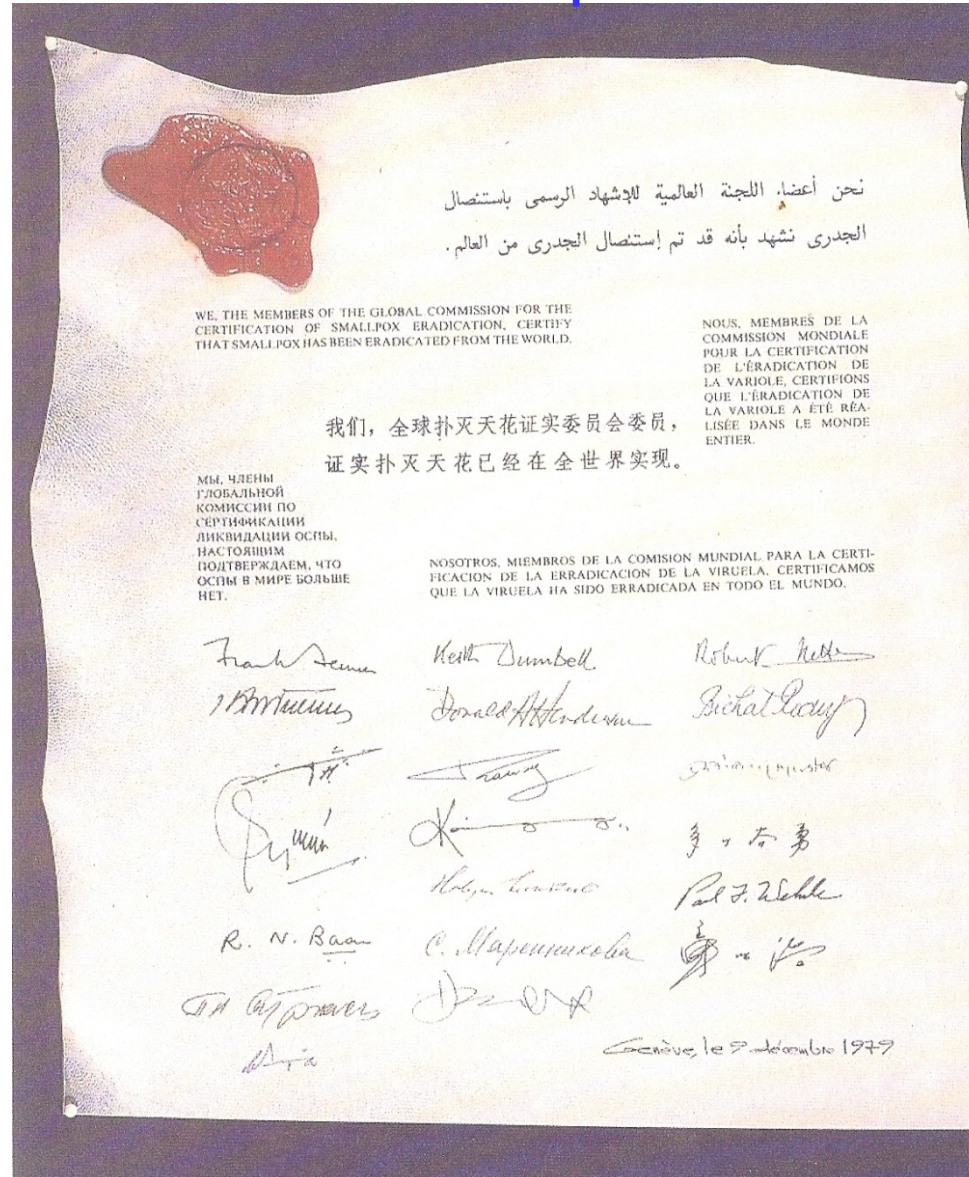 نحن أعضاء اللجنة العالمية للإشهاد الرسمى باستئصال
الجدرى نشهد بأنه قد تم إستئصال الجدرى من العالم .
WE, THE MEMBERS OF THE GLOBAL COMMISSION FOR THE
CERTIFICATION OF SMALLPOX ERADICATION, CERTIFY
THAT SMALLPOX HAS BEEN ERADICATED FROM THE WORLD.
NOUS, MEMBRES DE LA
COMMISSION MONDIALE
POUR LA CERTIFICATION
DE L'ÉRADICATION DE
LA VARIOLE, CERTIFIONS
QUE L'ÉRADICATION DE
LA VARIOLE A ÉTÉ RÉA-
LISÉE DANS LE MONDE
ENTIER.
我们，全球扑灭天花证实委员会委员，
证实扑灭天花已经在全世界实现。
МЫ, ЧЛЕНЫ
ГЛОБАЛЬНОЙ
КОМИССИИ ПО
СЕРТИФИКАЦИИ
ЛИКВИДАЦИИ ОСПЫ,
НАСТОЯЩИМ
ПОДТВЕРЖДАЕМ, ЧТО
ОСПЫ В МИРЕ БОЛЬШЕ
НЕТ.
NOSOTROS, MIEMBROS DE LA COMISION MUNDIAL PARA LA CERTI-
FICACION DE LA ERRADICACION DE LA VIRUELA, CERTIFICAMOS
QUE LA VIRUELA HA SIDO ERRADICADA EN TODO EL MUNDO.
Frank Fenner
Keith Dumbell
Robert Netter
Donald A Henderson
Bichat Rodrigues
Paul F. Wehrle
R. N. Basu
С. Маренникова
Genève, le 9 décembre 1979